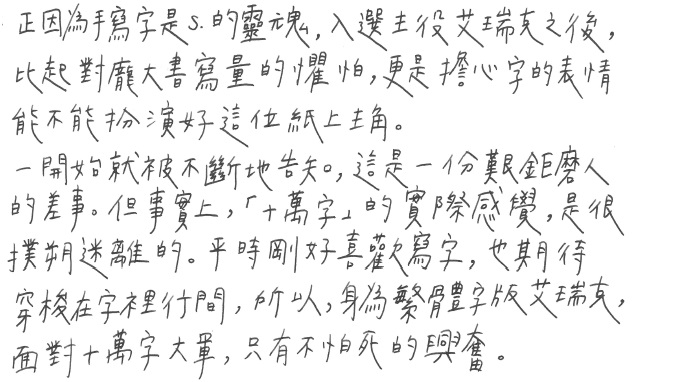 正因為手寫字是S.的靈魂,入選主役艾瑞克之後,
比起對龐大書寫量的懼怕,更是擔心字的表情
能不能扮演好這位紙上主角。
一開始就被不斷地告知,這是一份艱鉅磨人
的差事。但事實上,「十萬字」的實際感覺,是很
撲朔迷離的。平時剛好喜歡寫字,也期待
穿梭在字裡行間,所以,身為繁體字版艾瑞克,
面對十萬字大軍,只有不怕死的興奮。